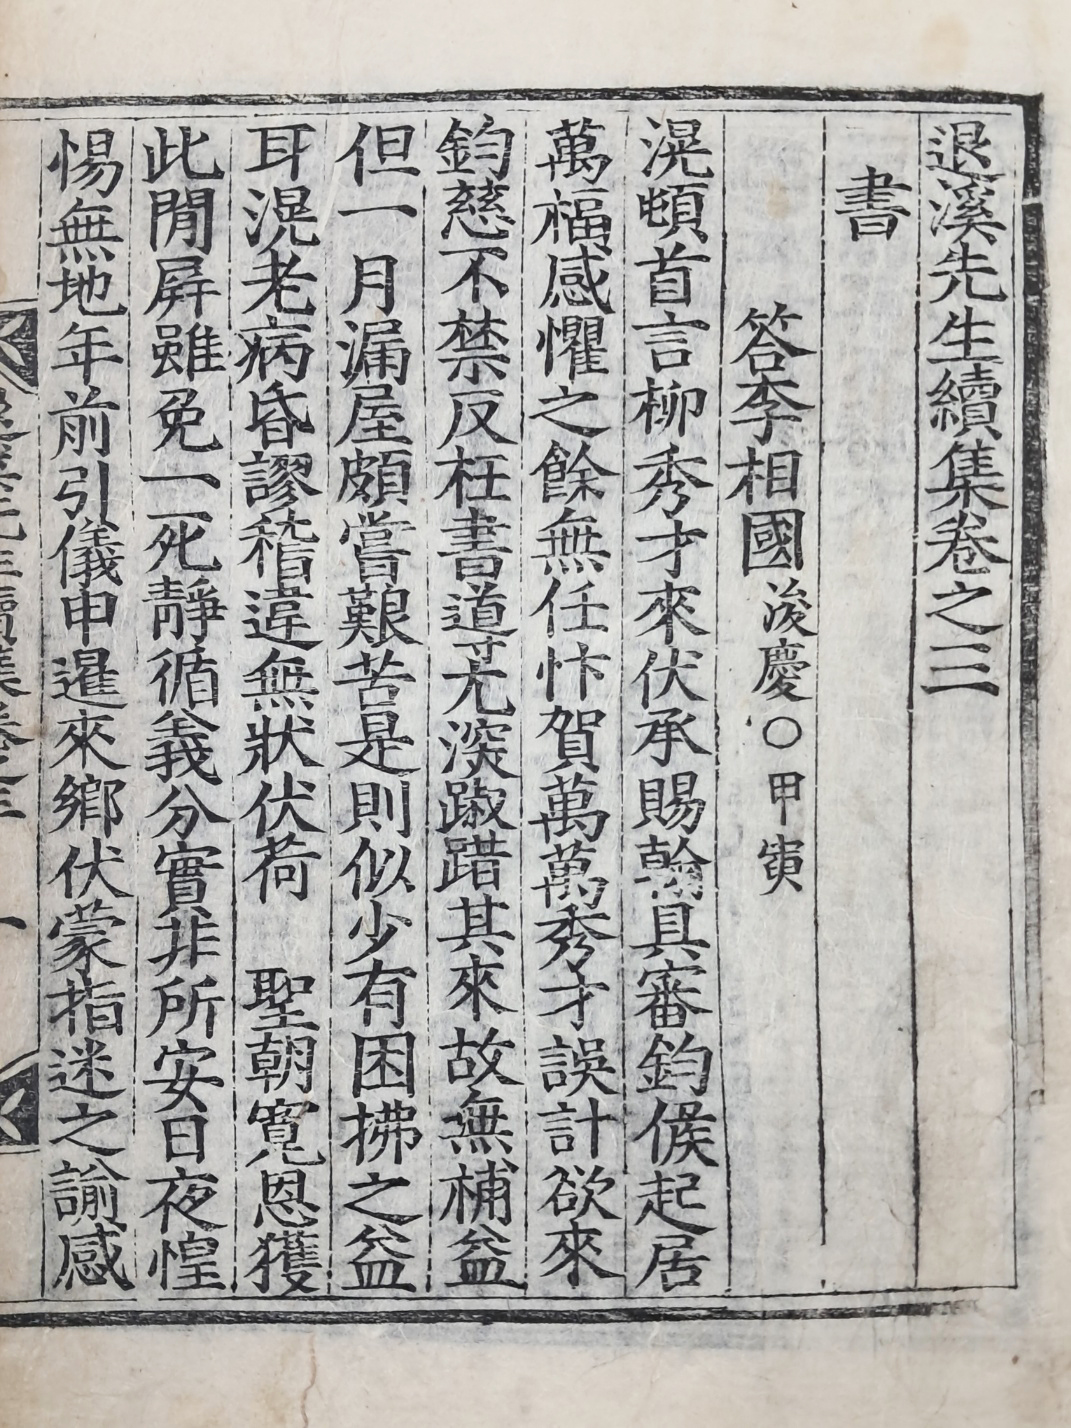 退溪先生續集卷之三
書
答李相國浚慶○甲寅
滉頓首言柳秀才來伏承賜翰具審鈞候起居
萬福感懼之餘無任忭賀萬萬秀才誤計欲來
鈞慈不禁反枉書道寸尤深踧踖其來故無補益
但一月漏屋頗嘗艱苦是則似少有困拂之益
耳滉老病昏謬稽違無狀伏荷 聖朝寬恩獲
此閒屛雖免一死靜循義分實非所安日夜惶
惕無地年前引儀申暹來鄕伏蒙指迷之諭感